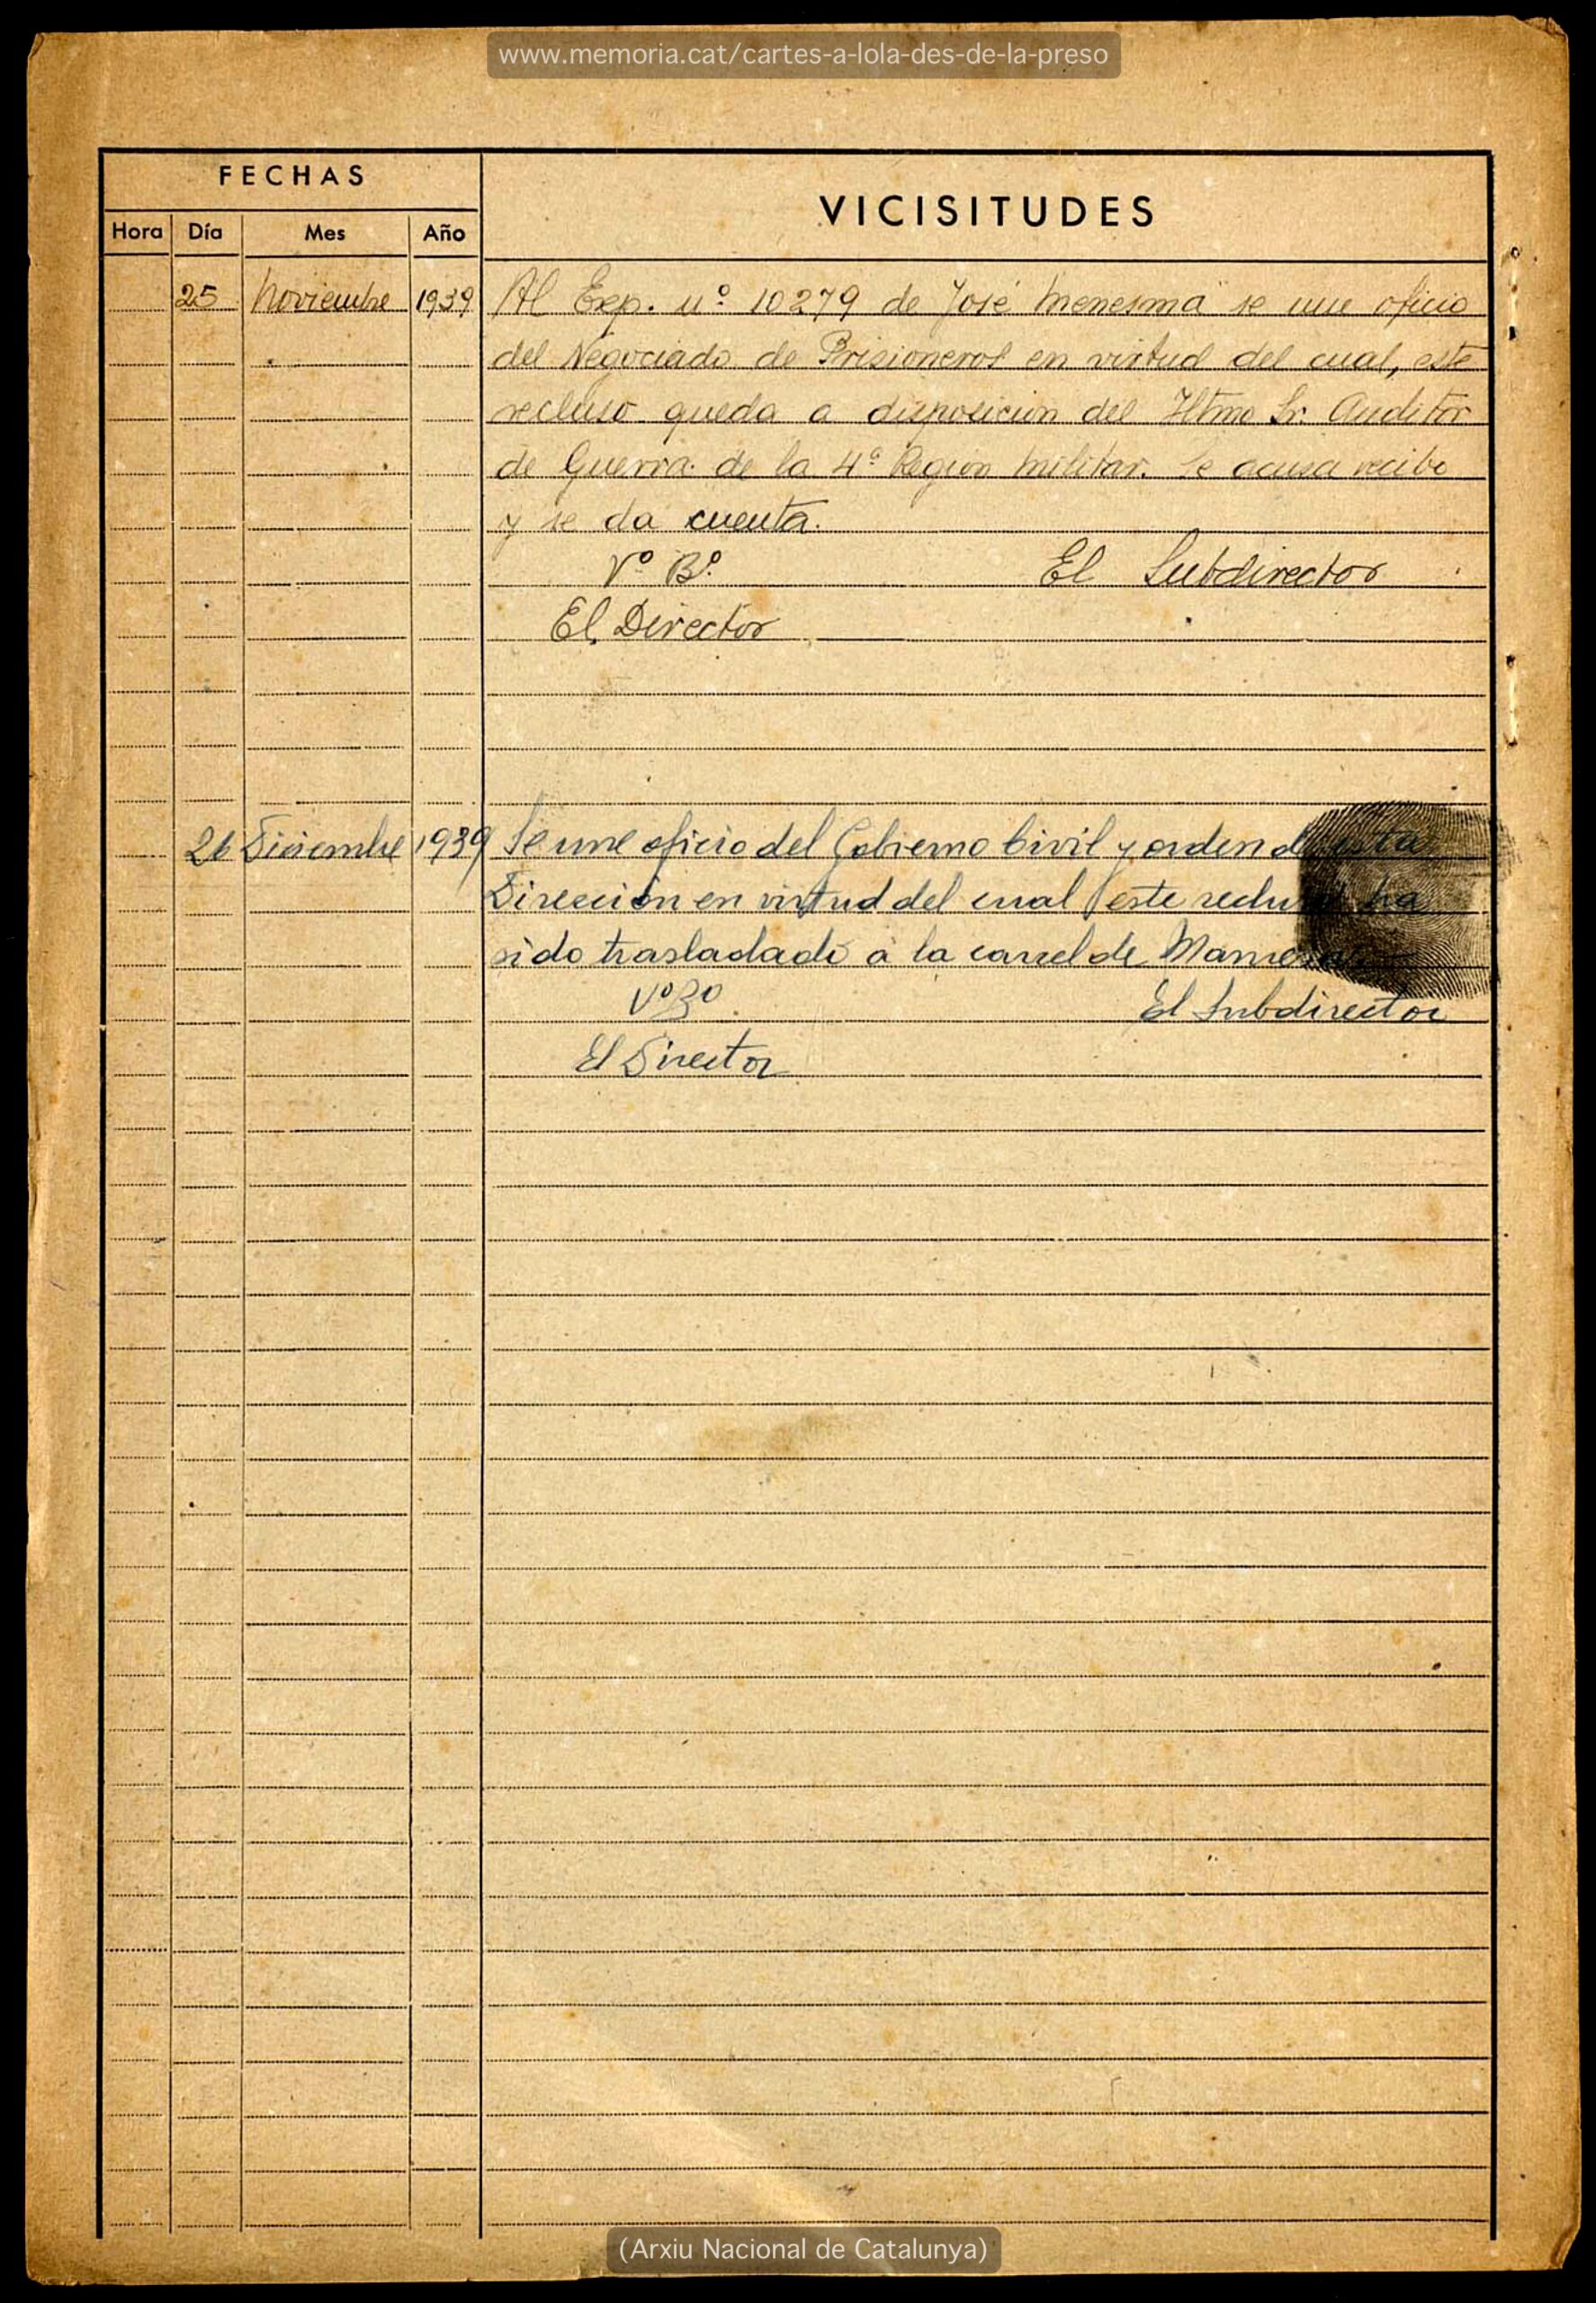 www.memoria.cat/cartes-a-lola-des-de-la-preso
FECHAS
VICISITUDES
Hora Día Mes Año
25 Noviembre 1939 Al Exp. nº 10279 de José se une oficio
del Negociado de Prisioneros en virtud del cual, este
recluso queda a disposicion del Iltmo Sr. Auditor
de Guerra de la 4ª Region Militar. Se acusa recibo
y se da cuenta.
Vº Bº El Subdirector
El Director
26 Diciembre 1939 Se une oficio del Gobierno Civil y orden de esta
Direccion en virtud del cual este recluso ha
sido trasladado a la carcel de
Vº Bº El Subdirector
El Director
(Arxiu Nacional de Catalunya)